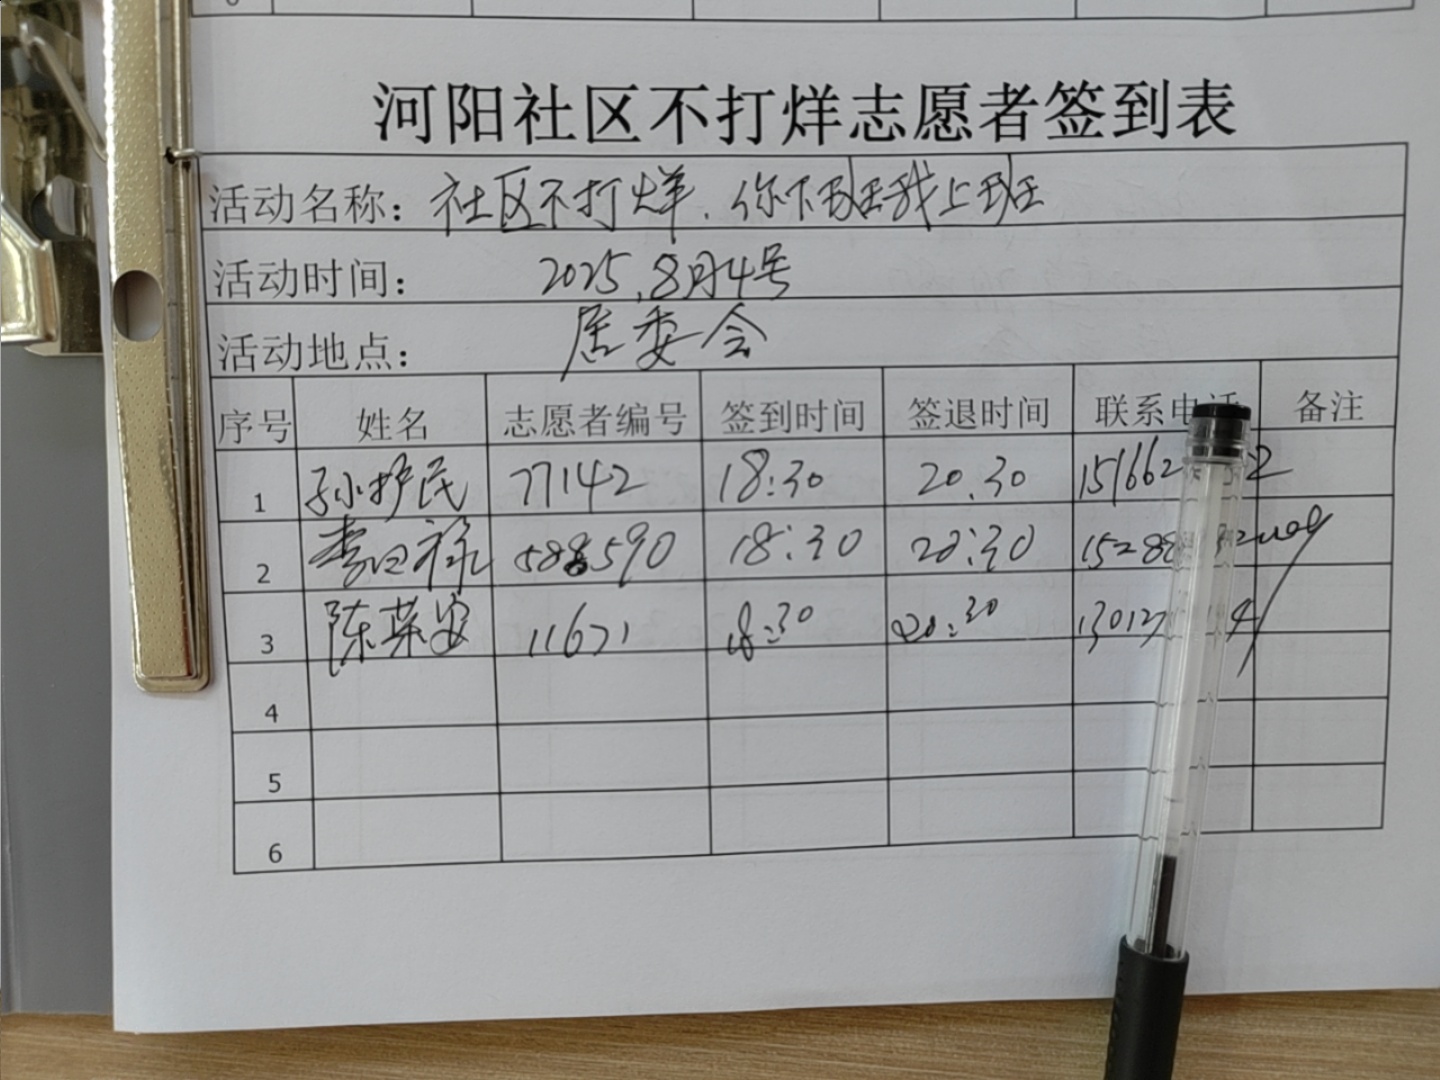 河阳社区不打烊志愿者签到表
活动名称：社区不打烊.你下班我上班
活动时间： 2025.8月4号
活动地点： 居委会
序号 姓名 志愿者编号 签到时间 签退时间 联系电话 备注
1 孙护民 77142 18:30 20.30 151662 2
2 李日禄 588590 18:30 20:30 15288
3 陈荣安 11671 18:30 20:30 13012 4
4
5
6